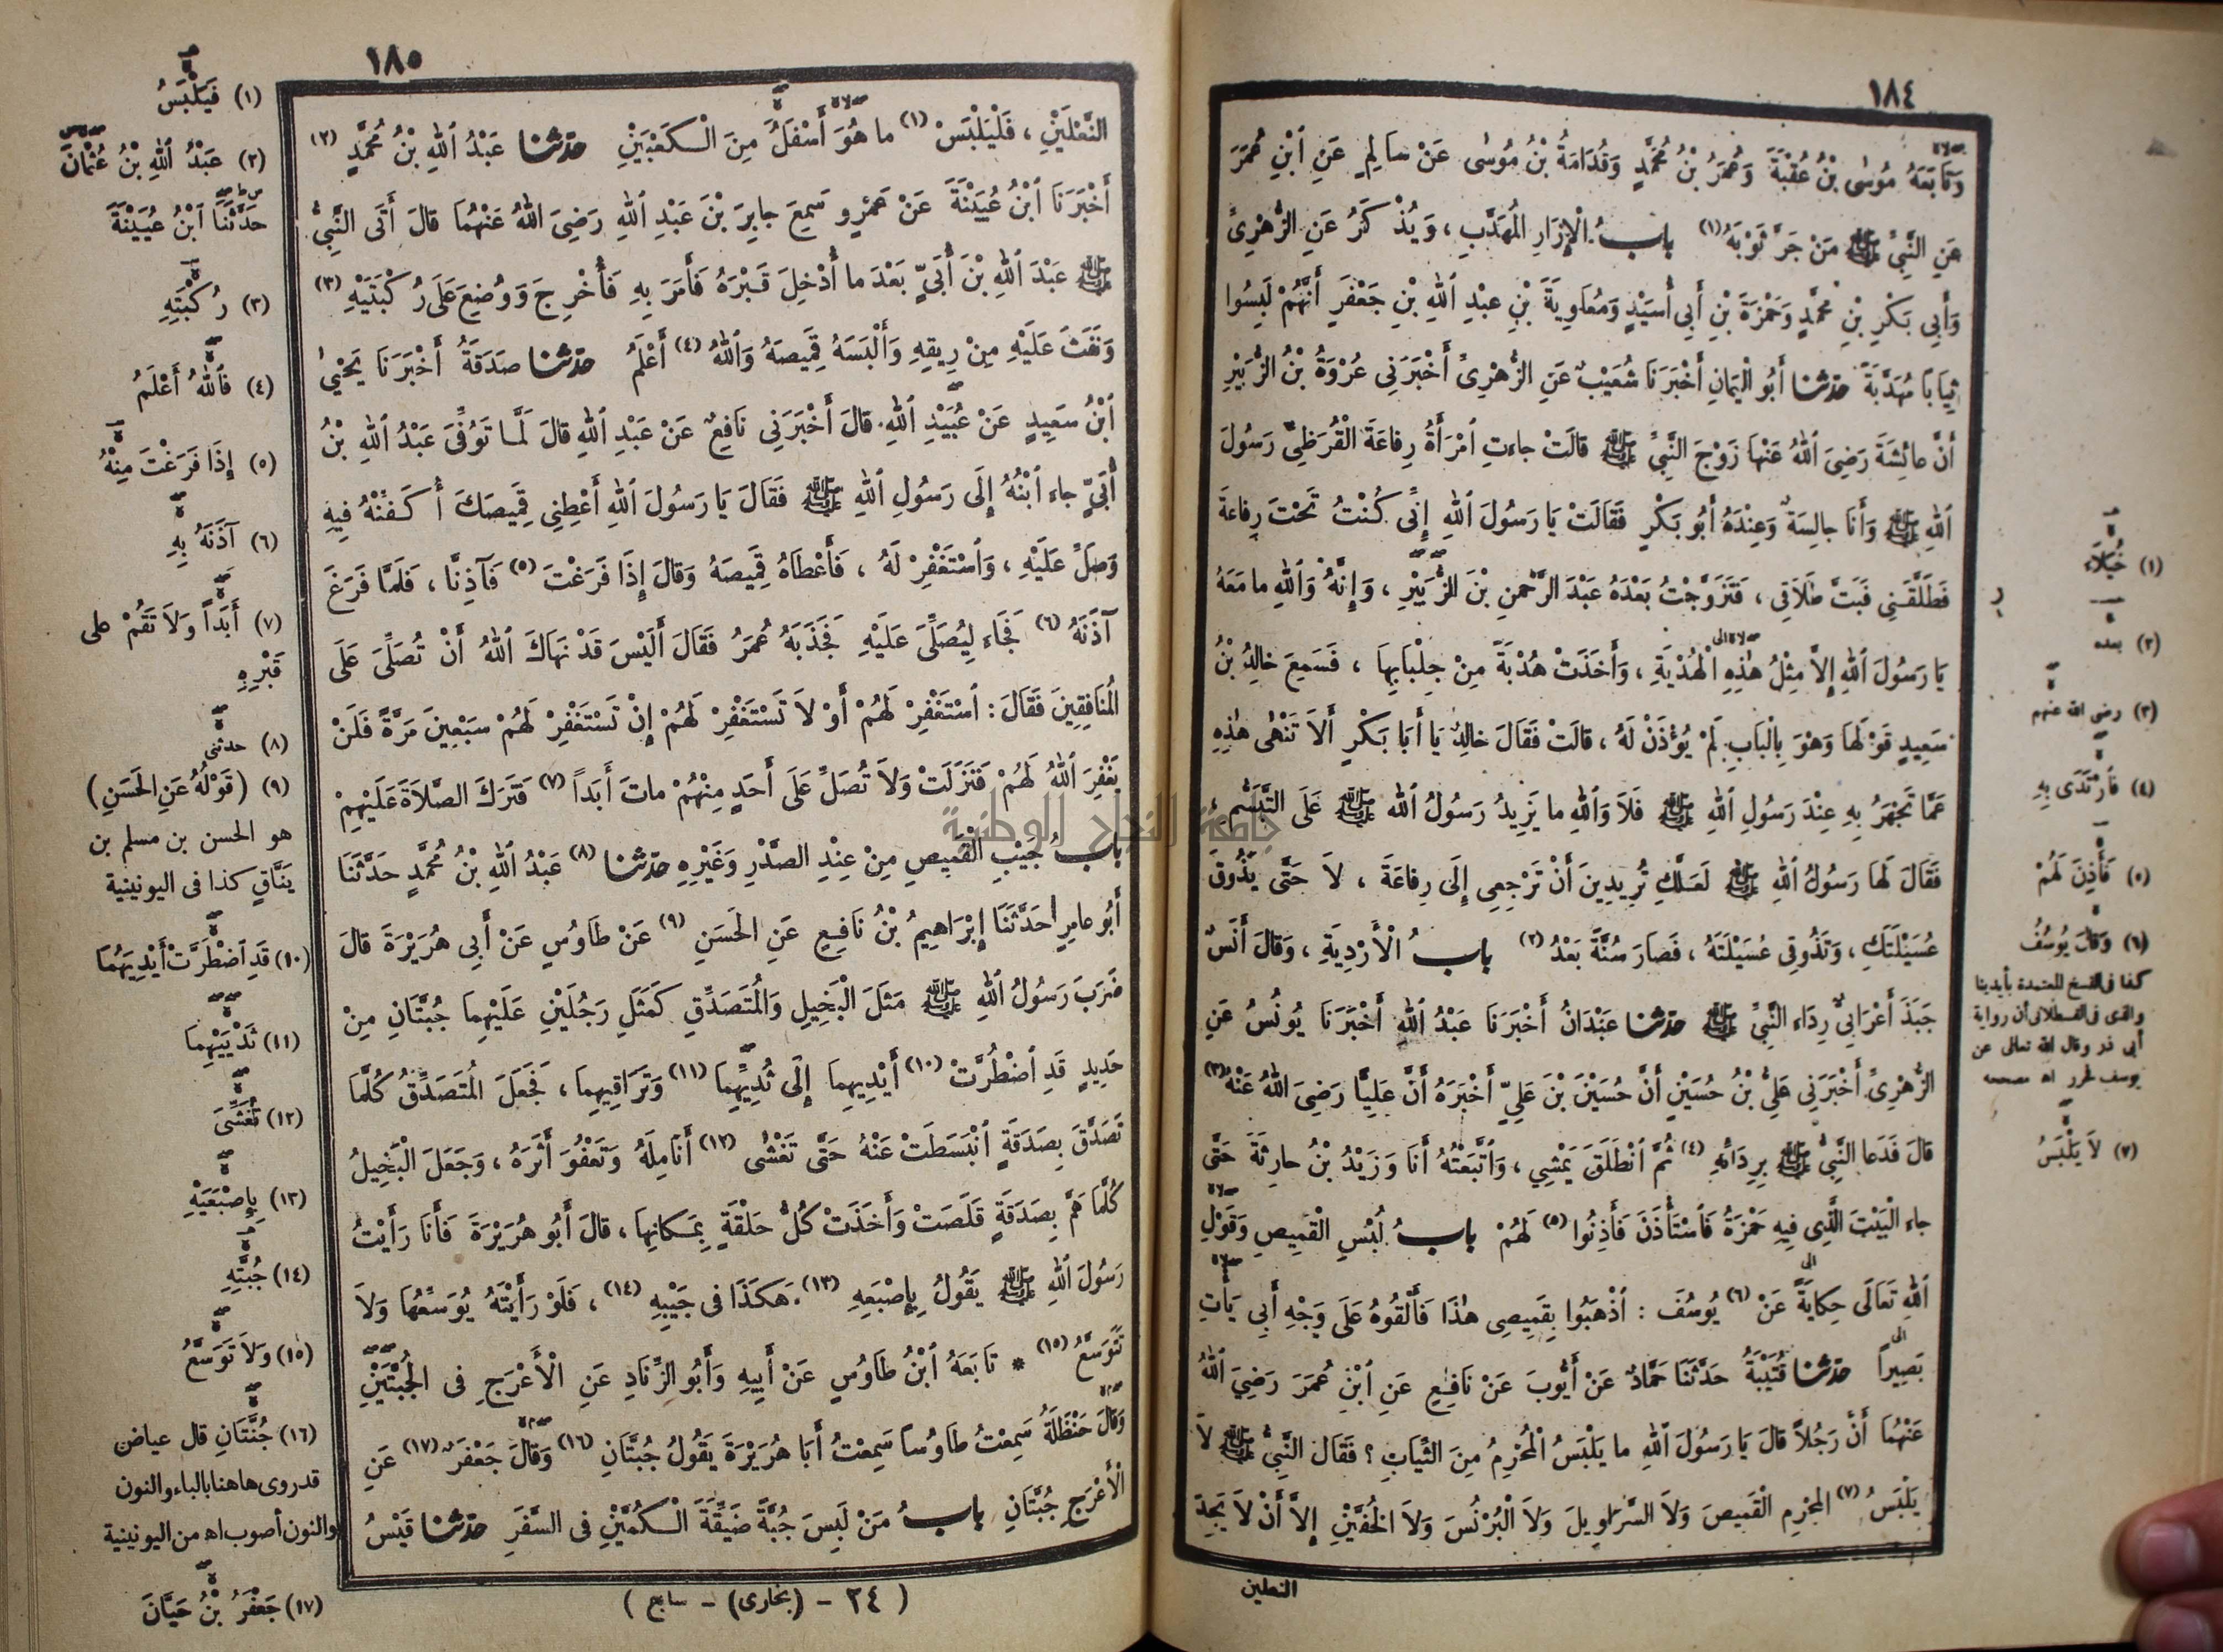 ١٨٤
وَتَابَعَهُ مُوسٰى بْنُ عُقْبَةَ وَعُمَرُ بْنُ مُحَمَّدٍ وَقُدَامَةُ بْنُ مُوسٰى عَنْ سَالِمٍ عَنِ ٱبْنِ عُمَرَ
عَنِ النَّبِيِّ ﷺ مَنْ جَرَّ ثَوْبَهُ (١) بابُ الْإِزَارِ الْمُهَدَّبِ ، وَيُذْكَرُ عَنِ الزُّهْرِيِّ
وَأَبِي بَكْرِ بْنِ مُحَمَّدٍ وَحَمْزَةَ بْنِ أَبِي أُسَيْدٍ وَمُعَاوِيَةَ بْنِ عبْدِ ٱللهِ بْنِ جَعْفَرٍ أَنَّهُمْ لَبِسُوا
ثِيَابًا مُهَدَّبَةً حدثنا أَبُو الْيَمَانِ أَخْبَرَنَا شُعَيْبٌ عَنِ الزُّهْرِيِّ أَخْبَرَنِي عُرْوَةُ بْنُ الزُّبَيْرِ
أَنَّ عائِشَةَ رَضِيَ ٱللهُ عَنْهَا زَوْجَ النَّبِيِّ ﷺ قالَتْ جاءتِ ٱمْرَأَةُ رِفاعَةَ الْقُرَظِيِّ رَسُولَ
ٱللهِ ﷺ وَأَنَا جالِسَةٌ وَعِنْدَهُ أَبُو بَكْرٍ فَقَالَتْ يَا رَسُولَ ٱللهِ إِنِّي كُنْتُ تَحْتَ رِفاعَةَ
فَطَلَّقَنِي فَبَتَّ طَلَاقِي ، فَتَزَوَّجْتُ بَعْدَهُ عَبْدَ الرَّحْمٰنِ بْنَ الزُّبَيْرِ ، وَإِنَّهُ وَٱللهِ ما مَعَهُ
يَا رَسُولَ ٱللهِ إِلاَّ مِثْلُ هٰذِهِ الْهُدْبَةِ ، وَأَخَذَتْ هُدْبَةً مِنْ جِلْبَابِهَا ، فَسَمِعَ خالِدُ بْنُ
سَعِيدٍ قَوْلَهَا وَهْوَ بِالْبَابِ لَمْ يُؤْذَنْ لَهُ ، قالَتْ فَقَالَ خالِدٌ يَا أَبَا بَكْرٍ أَلاَ تَنْهٰى هٰذِهِ
عَمَّا تَجْهَرُ بِهِ عِنْدَ رَسُولِ ٱللهِ ﷺ فَلاَ وَٱللهِ ما يَزِيدُ رَسُولُ ٱللهِ ﷺ عَلَى التَّبَسُّمِ
فَقَالَ لَهَا رَسُولُ ٱللهِ ﷺ لَعَلَّكِ تُرِيدِينَ أَنْ تَرْجِعِي إِلَى رِفاعَةَ ، لاَ حَتَّى يَذُوقَ
عُسَيْلَتَكِ ، وَتَذُوقِي عُسَيْلَتَهُ ، فَصَارَ سُنَّةً بَعْدُ (٢) بابُ الْأَرْدِيَةِ ، وَقالَ أَنَسٌ
جَبَذَ أَعْرَابِيٌّ رِدَاءَ النَّبِيِّ ﷺ حدثنا عَبْدَانُ أَخْبَرَنَا عَبْدُ ٱللهِ أَخْبَرَنَا يُونُسُ عَنِ
الزُّهْرِيِّ أَخْبَرَنِي عَلِيُّ بْنُ حُسَيْنٍ أَنَّ حُسَيْنَ بْنَ عَلِيٍّ أَخْبَرَهُ أَنَّ عَلِيًّا رَضِيَ ٱللهُ عَنْهُ (٣)
قالَ فَدَعا النَّبِيُّ ﷺ بِرِدَائِهِ (٤) ثُمَّ ٱنْطَلَقَ يَمْشِي ، وَٱتَّبَعْتُهُ أَنَا وَزَيْدُ بْنُ حارِثَةَ حَتَّى
جاء الْبَيْتَ الَّذِي فِيهِ حَمْزَةُ فَٱسْتَأْذَنَ فَأَذِنُوا (٥) لَهُمْ بابُ لُبْسِ الْقَمِيصِ وَقَوْلِ
ٱللهِ تَعَالَى حِكايَةً عَنْ (٦) يُوسُفَ : ٱذْهَبُوا بِقَمِيصِي هٰذَا فَأَلْقُوهُ عَلَى وَجْهِ أَبِي يَأْتِ
بَصِيراً حدثنا قُتَيْبَةُ حَدَّثَنَا حَمَّادٌ عَنْ أَيُّوبَ عَنْ نَافِعٍ عَنِ ٱبْنِ عُمَرَ رَضِيَ ٱللهُ
عَنْهُمَا أَنَّ رَجُلاً قالَ يَا رَسُولَ ٱللهِ ما يَلْبَسُ الْمُحْرِمُ مِنَ الثِّيَابِ ؟ فَقَالَ النَّبِيُّ ﷺ لاَ
يَلْبَسُ (٧) المحرِم الْقَمِيصَ وَلاَ السَّرَاوِيلَ وَلاَ الْبُرْنُسَ وَلاَ الخُفَّيْنِ إِلاَّ أَنْ لاَ يَجِدَ
النعلين
(١) خُيَلَاءَ
(٢) بعده
(٣) رضى الله عنهم
(٤) فَٱرْتَدَى بِهِ
(٥) فَأَذِنَ لَهُمْ
(٦) وَقَالَ يُوسُفُ
كذا فى النسخ المعتمدة بأيدينا
والذى فى القسطلانى أن رواية
أبى ذر وقال الله تعالى عن
يوسف فحرر اه مصححه
(٧) لاَ يَلْبَسُ
١٨٥
النَّعْلَيْنِ ، فَلْيَلْبَسْ (١) ما هُوَ أَسْفَلُ مِنَ الْكَعْبَيْنِ حدثنا عَبْدُ ٱللهِ بْنُ مُحَمَّدٍ (٢)
أَخْبَرَنَا ٱبْنُ عُيَيْنَةَ عَنْ عَمْرٍو سَمِعَ جابِرَ بْنَ عَبْدِ ٱللهِ رَضِيَ ٱللهُ عَنْهُمَا قالَ أَتَى النَّبِيُّ
ﷺ عَبْدَ ٱللهِ بْنَ أُبَيٍّ بَعْدَ ما أُدْخِلَ قَبْرَهُ فَأَمَرَ بِهِ فَأُخْرِجَ وَوُضِعَ عَلَى رُكْبَتَيْهِ (٣)
وَنَفَثَ عَلَيْهِ مِنْ رِيقِهِ وَأَلْبَسَهُ قَمِيصَهُ وَٱللهُ (٤) أَعْلَمُ حدثنا صَدَقَةُ أَخْبَرَنَا يَحْيٰى
ٱبْنُ سَعِيدٍ عَنْ عُبَيْدِ ٱللهِ قالَ أَخْبَرَنِي نَافِعٌ عَنْ عَبْدِ ٱللهِ قالَ لَمَّا تُوُفِّيَ عَبْدُ ٱللهِ بْنُ
أُبَيٍّ جاء ٱبْنُهُ إِلَى رَسُولِ ٱللهِ ﷺ فَقَالَ يَا رَسُولَ ٱللهِ أَعْطِنِي قَمِيصَكَ أُكَفِّنْهُ فِيهِ
وَصَلِّ عَلَيْهِ ، وَٱسْتَغْفِرْ لَهُ ، فَأَعْطَاهُ قَمِيصَهُ وَقالَ إِذَا فَرَغْتَ (٥) فَآذِنَّا ، فَلَمَّا فَرَغَ
آذَنَهُ (٦) فَجَاء لِيُصَلِّيَ عَلَيْهِ فَجَذَبَهُ عُمَرُ فَقَالَ أَلَيْسَ قَدْ نَهَاكَ ٱللهُ أَنْ تُصَلِّيَ عَلَى
الْمُنَافِقِينَ فَقَالَ : ٱسْتَغْفِرْ لَهُمْ أَوْ لاَ تَسْتَغْفِرْ لَهُمْ إِنْ تَسْتَغْفِرْ لَهُمْ سَبْعِينَ مَرَّةً فَلَنْ
يَغْفِرَ ٱللهُ لَهُمْ فَنَزَلَتْ وَلاَ تُصَلِّ عَلَى أَحَدٍ مِنْهُمْ ماتَ أَبَداً (٧) فَتَرَكَ الصَّلاَةَ عَلَيْهِمْ
بابُ جَيْبِ الْقَمِيصِ مِنْ عِنْدِ الصَّدْرِ وَغَيْرِهِ حدثنا (٨) عَبْدُ ٱللهِ بْنُ مُحَمَّدٍ حَدَّثَنَا
أَبُو عامِرٍ حَدَّثَنَا إِبْرَاهِيمُ بْنُ نَافِعٍ عَنِ الحَسَنِ (٩) عَنْ طَاوُسٍ عَنْ أَبِي هُرَيْرَةَ قالَ
ضَرَبَ رَسُولُ ٱللهِ ﷺ مَثَلَ الْبَخِيلِ وَالْمُتَصَدِّقِ كَمَثَلِ رَجُلَيْنِ عَلَيْهِمَا جُبَّتَانِ مِنْ
حَدِيدٍ قَدِ ٱضْطُرَّتْ (١٠) أَيْدِيهِمَا إِلَى ثُدِيِّهِمَا (١١) وَتَرَاقِيهِمَا ، فَجَعَلَ الْمُتَصَدِّقُ كُلَّمَا
تَصَدَّقَ بِصَدَقَةٍ ٱنْبَسَطَتْ عَنْهُ حَتَّى تَغْشٰى (١٢) أَنَامِلَهُ وَتَعْفُوَ أَثَرَهُ ، وَجَعَلَ الْبَخِيلُ
كُلَّمَا هَمَّ بِصَدَقَةٍ قَلَصَتْ وَأَخَذَتْ كُلُّ حَلْقَةٍ بِمَكانِهَا ، قالَ أَبُو هُرَيْرَةَ فَأَنَا رَأَيْتُ
رَسُولَ ٱللهِ ﷺ يَقُولُ بِإِصْبَعِهِ (١٣) هَكَذَا فى جَيْبِهِ (١٤) ، فَلَوْ رَأَيْتَهُ يُوَسِّعُهَا وَلاَ
تَتَوَسَّعُ (١٥) * تَابَعَهُ ٱبْنُ طَاوُسٍ عَنْ أَبِيهِ وَأَبُو الزِّنَادِ عَنِ الْأَعْرَجِ فى الْجُبَّتَيْنِ
وَقالَ حَنْظَلَةُ سَمِعْتُ طَاوُسًا سَمِعْتُ أَبَا هُرَيْرَةَ يَقُولُ جُبَّتَانِ (١٦) وَقالَ جَعْفَرٌ (١٧) عَنِ
الْأَعْرَجِ جُبَّتَانِ بابُ مَنْ لَبِسَ جُبَّةً ضَيِّقَةَ الْكُمَّيْنِ فى السَّفَرِ حدثنا قَيْسُ
( ٢٤ - (بخارى) - سابع )
(١) فَيَلْبَسُ
(٢) عَبْدُ ٱللهِ بْنُ عُثْمَانَ
حَدَّثَنَا ٱبْنُ عُيَيْنَةَ
(٣) رُكْبَتِهِ
(٤) فَٱللهُ أَعْلَمُ
(٥) إِذَا فَرَغْتَ مِنْهُ
(٦) آذَنَهُ بِهِ
(٧) أَبَداً وَلاَ تَقُمْ على
قَبْرِهِ
(٨) حدثنى
(٩) (قَوْلُهُ عَنِ الحَسَنِ)
هو الحسن بن مسلم بن
يَنَّاقٍ كذا فى اليونينية
(١٠) قَدِ ٱضْطَرَّتْ أَيْدِيَهُمَا
(١١) ثَدْيَيْهِمَا
(١٢) تُغَشِّيَ
(١٣) بِإِصْبَعَيْهِ
(١٤) جُبَّتِهِ
(١٥) وَلاَ تَوَسَّعُ
(١٦) جُنَّتَانِ قال عياض
قد روى ها هنا بالباء والنون
والنون أصوب اه من اليونينية
(١٧) جَعْفَرُ بْنُ حَيَّانَ
جامعة النجاح الوطنية